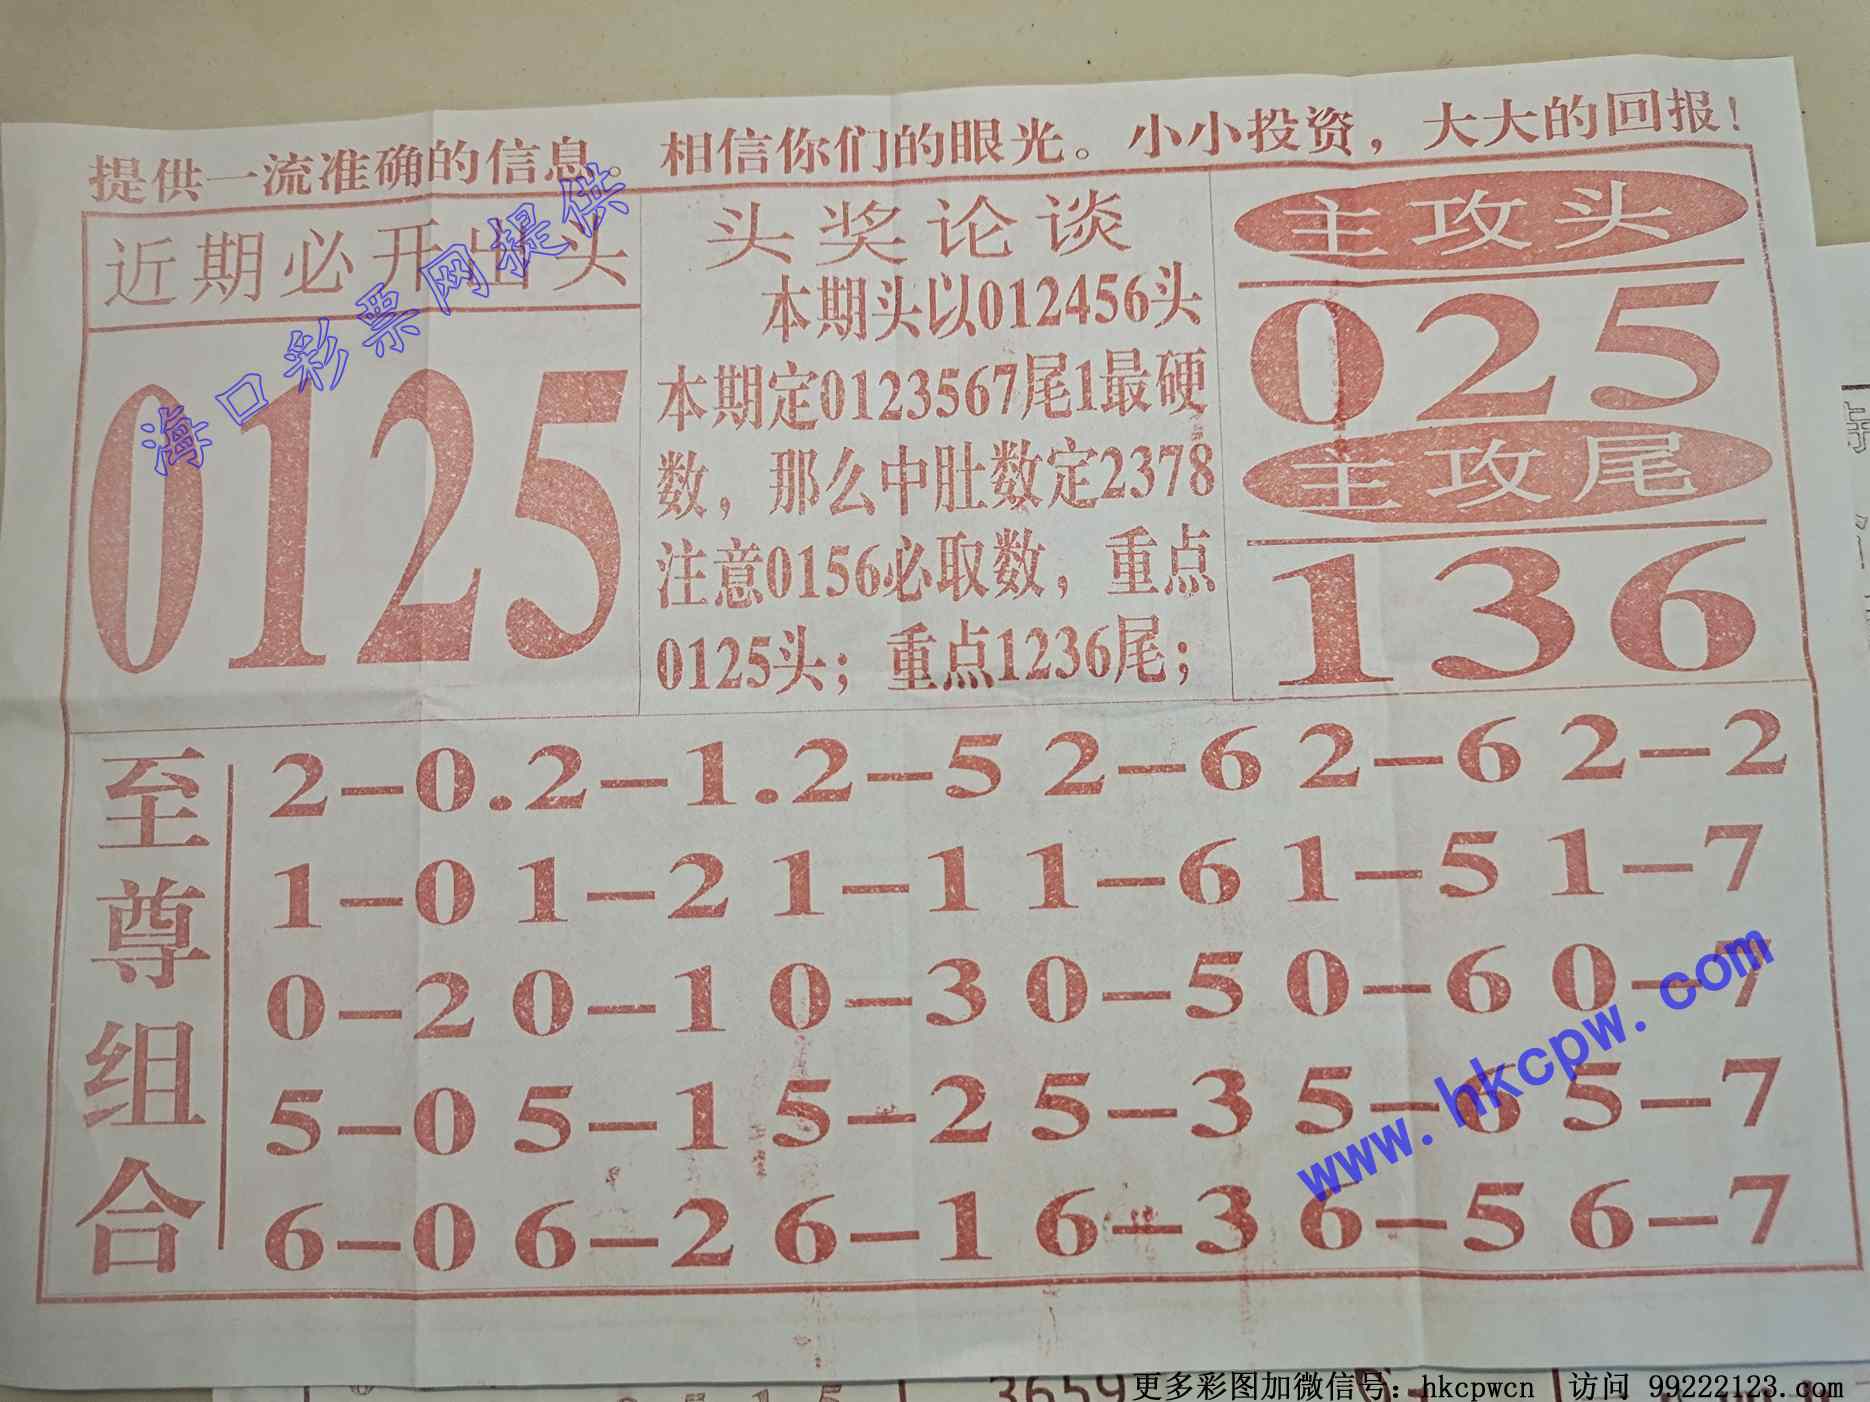 提供一流准确的信息。相信你们的眼光。小小投资，大大的回报！
近期必开出头
0125
头奖论谈
本期头以012456头
本期定0123567尾1最硬
数，那么中肚数定2378
注意0156必取数，重点
0125头；重点1236尾；
主攻头
025
主攻尾
136
至尊组合
2-0.2-1.2-5 2-6 2-6 2-2
1-0 1-2 1-1 1-6 1-5 1-7
0-2 0-1 0-3 0-5 0-6 0-7
5-0 5-1 5-2 5-3 5-6 5-7
6-0 6-2 6-1 6-3 6-5 6-7
海口彩票网提供
www.hkcpw.com
3659
更多彩图加微信号：hkcpwcn 访问 99222123.com